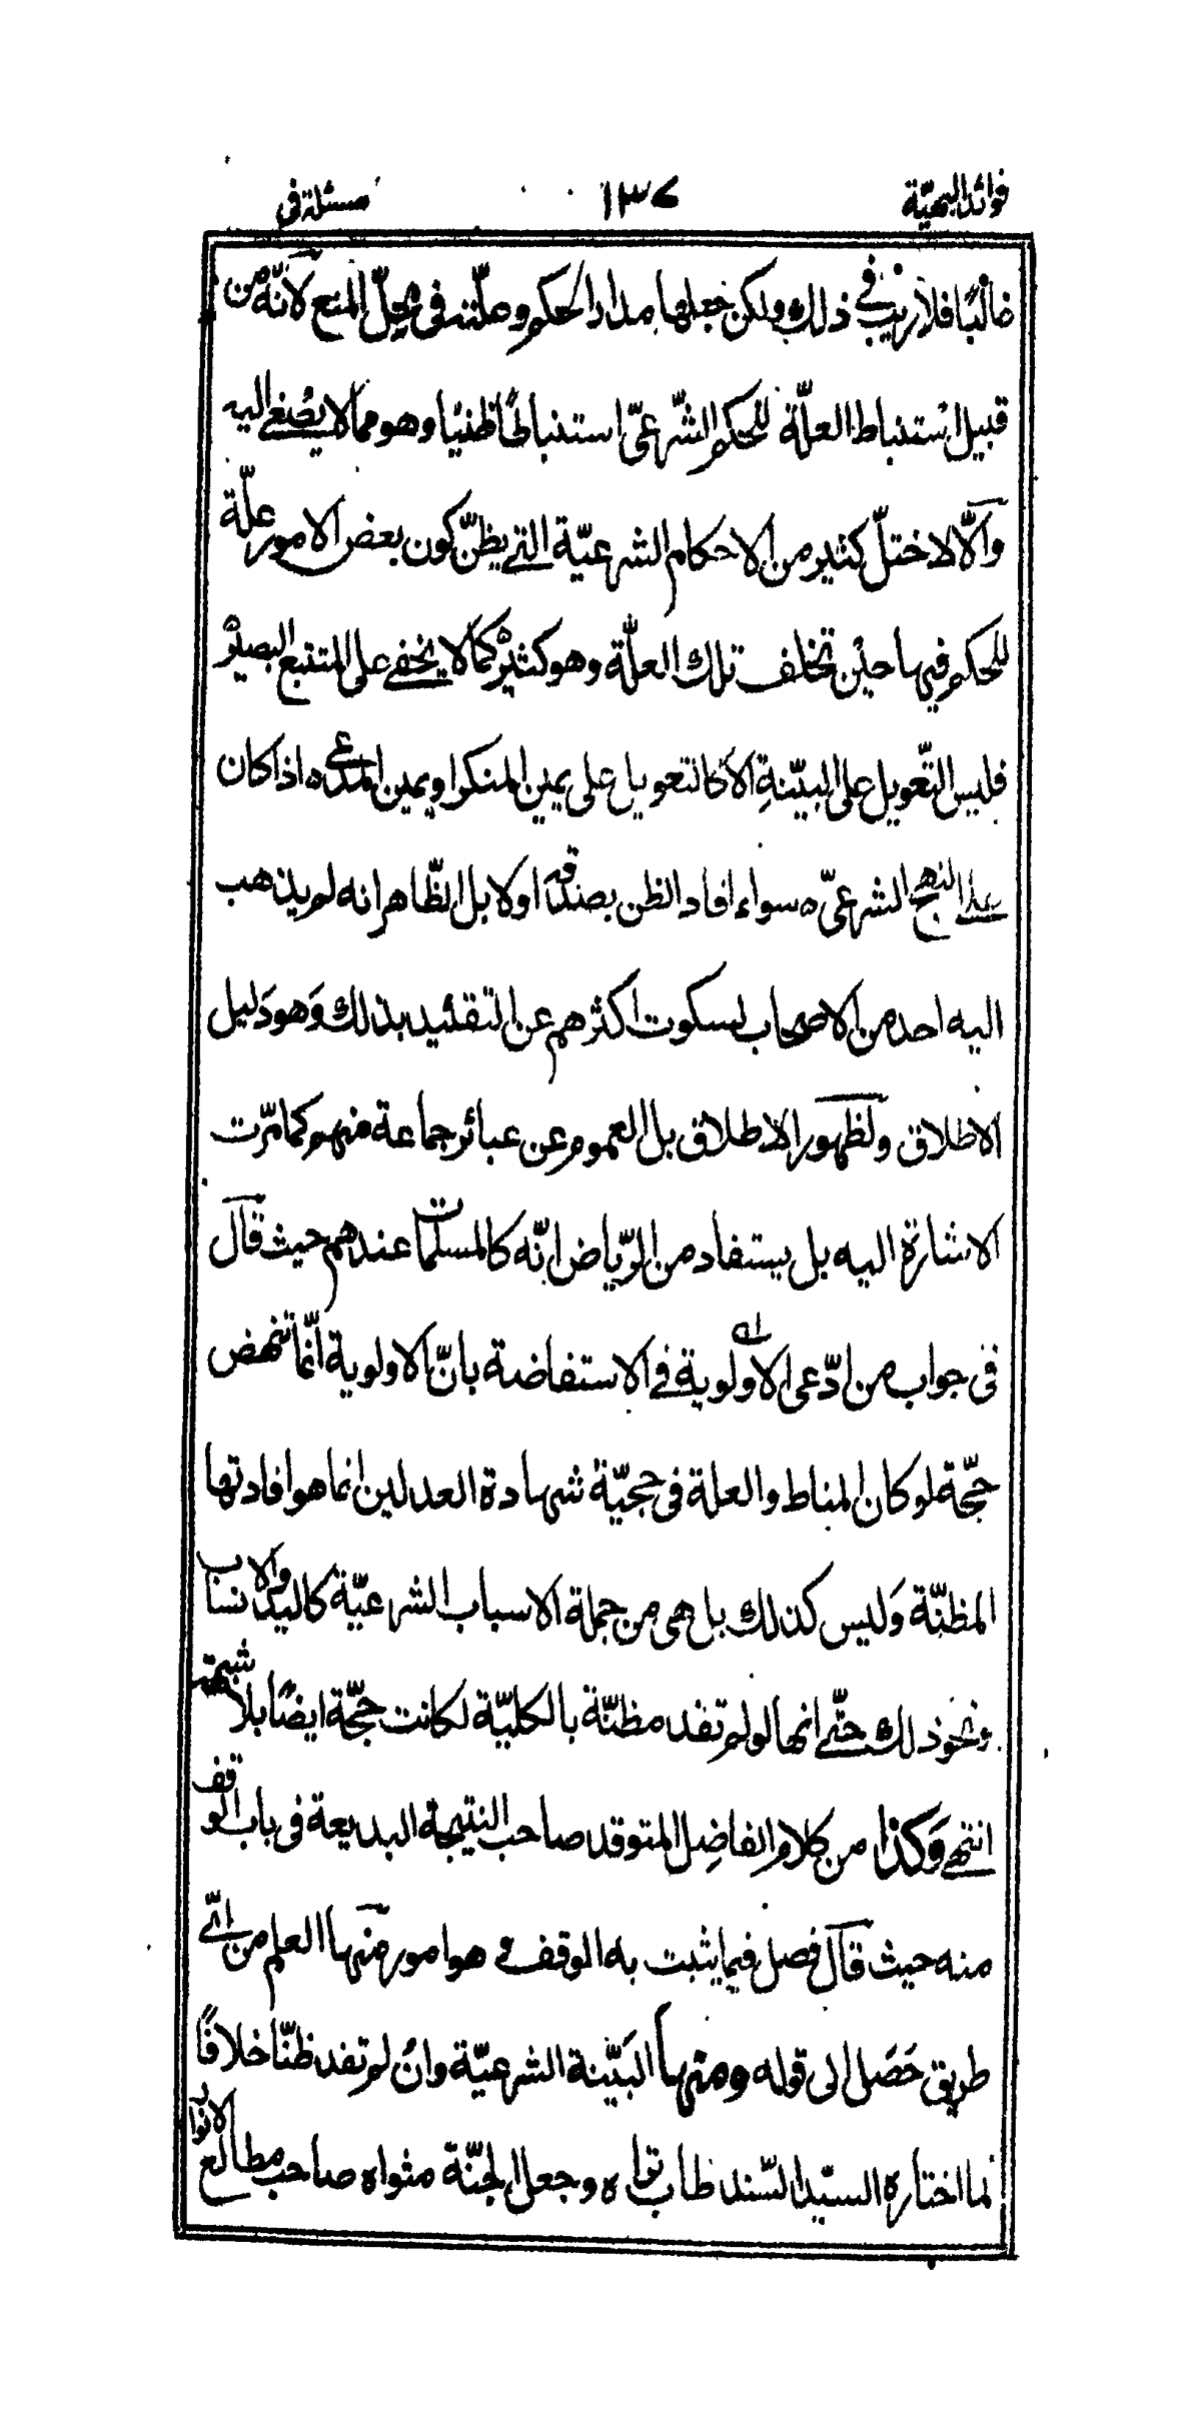 فوائد البهيّة ١٣٧ مسئلة فى
غالبًا فلا ريب في ذلك ولكن جعلها مدار الحكم وعلّته فى محلّ المنع لانّه من
قبيل استنباط العلّة للحكم الشّرعىّ استنباطًا ظنيًا وهو مما لا يصغى اليه
والّا لاختلّ كثير من الاحكام الشرعيّة التى يظنّ كون بعض الامور علّة
للحكم فيها حين تخلف تلك العلّة وهو كثيرٌ كما لا يخفى على المتتبع البصير
فليس التّعويل على البيّنةِ الّا كالتعويل على يمين المنكر او يمين المدعى ه اذا كان
على النهج الشرعىّ ه سواء افاد الظن بصدقه اولا بل الظّاهر انه لم يذهب
اليه احد من الاصحاب لسكوت اكثرهم عن التقئيد بذلك وَهو دَليل
الاطلاق ولظهور الاطلاق بل العموم عن عبائر جماعة منهم كما مرّت
الاشارة اليه بل يستفاد من الرّياض انّه كالمسلمات عندهم حيث قال
فى جواب من ادّعى الاولوية فى الاستفاضة بانّ الاولوية انّما تنهض
حجّة لو كان المناط والعلة فى حجيّة شهادة العدلين انما هو افادتها
المظنّة وَليس كذلك بل هى من جملة الاسباب الشرعيّة كاليد والانساب
ونحو ذلك حتّى انها لو لم تفد مظنّة بالكليّة لكانت حجّة ايضًا بلا شبهة
انتهى وَكذا من كلام الفاضِل المتوقد صاحب النتيجة البديعة فى باب الوقف
منه حيث قال فصل فيما يثبت به الوقف و هو امور منها العلم من اىّ
طريق حَصَل الى قوله ومنها البَيّنة الشرعيّة وان لم تفد ظنّا خلافًا
لما اختاره السيّد السّند طاب ثراه وجعل الجنّة مثواه صاحب مطالع الانوار